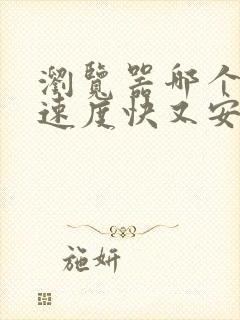 瀏覽器哪个
速度快又安
施妍